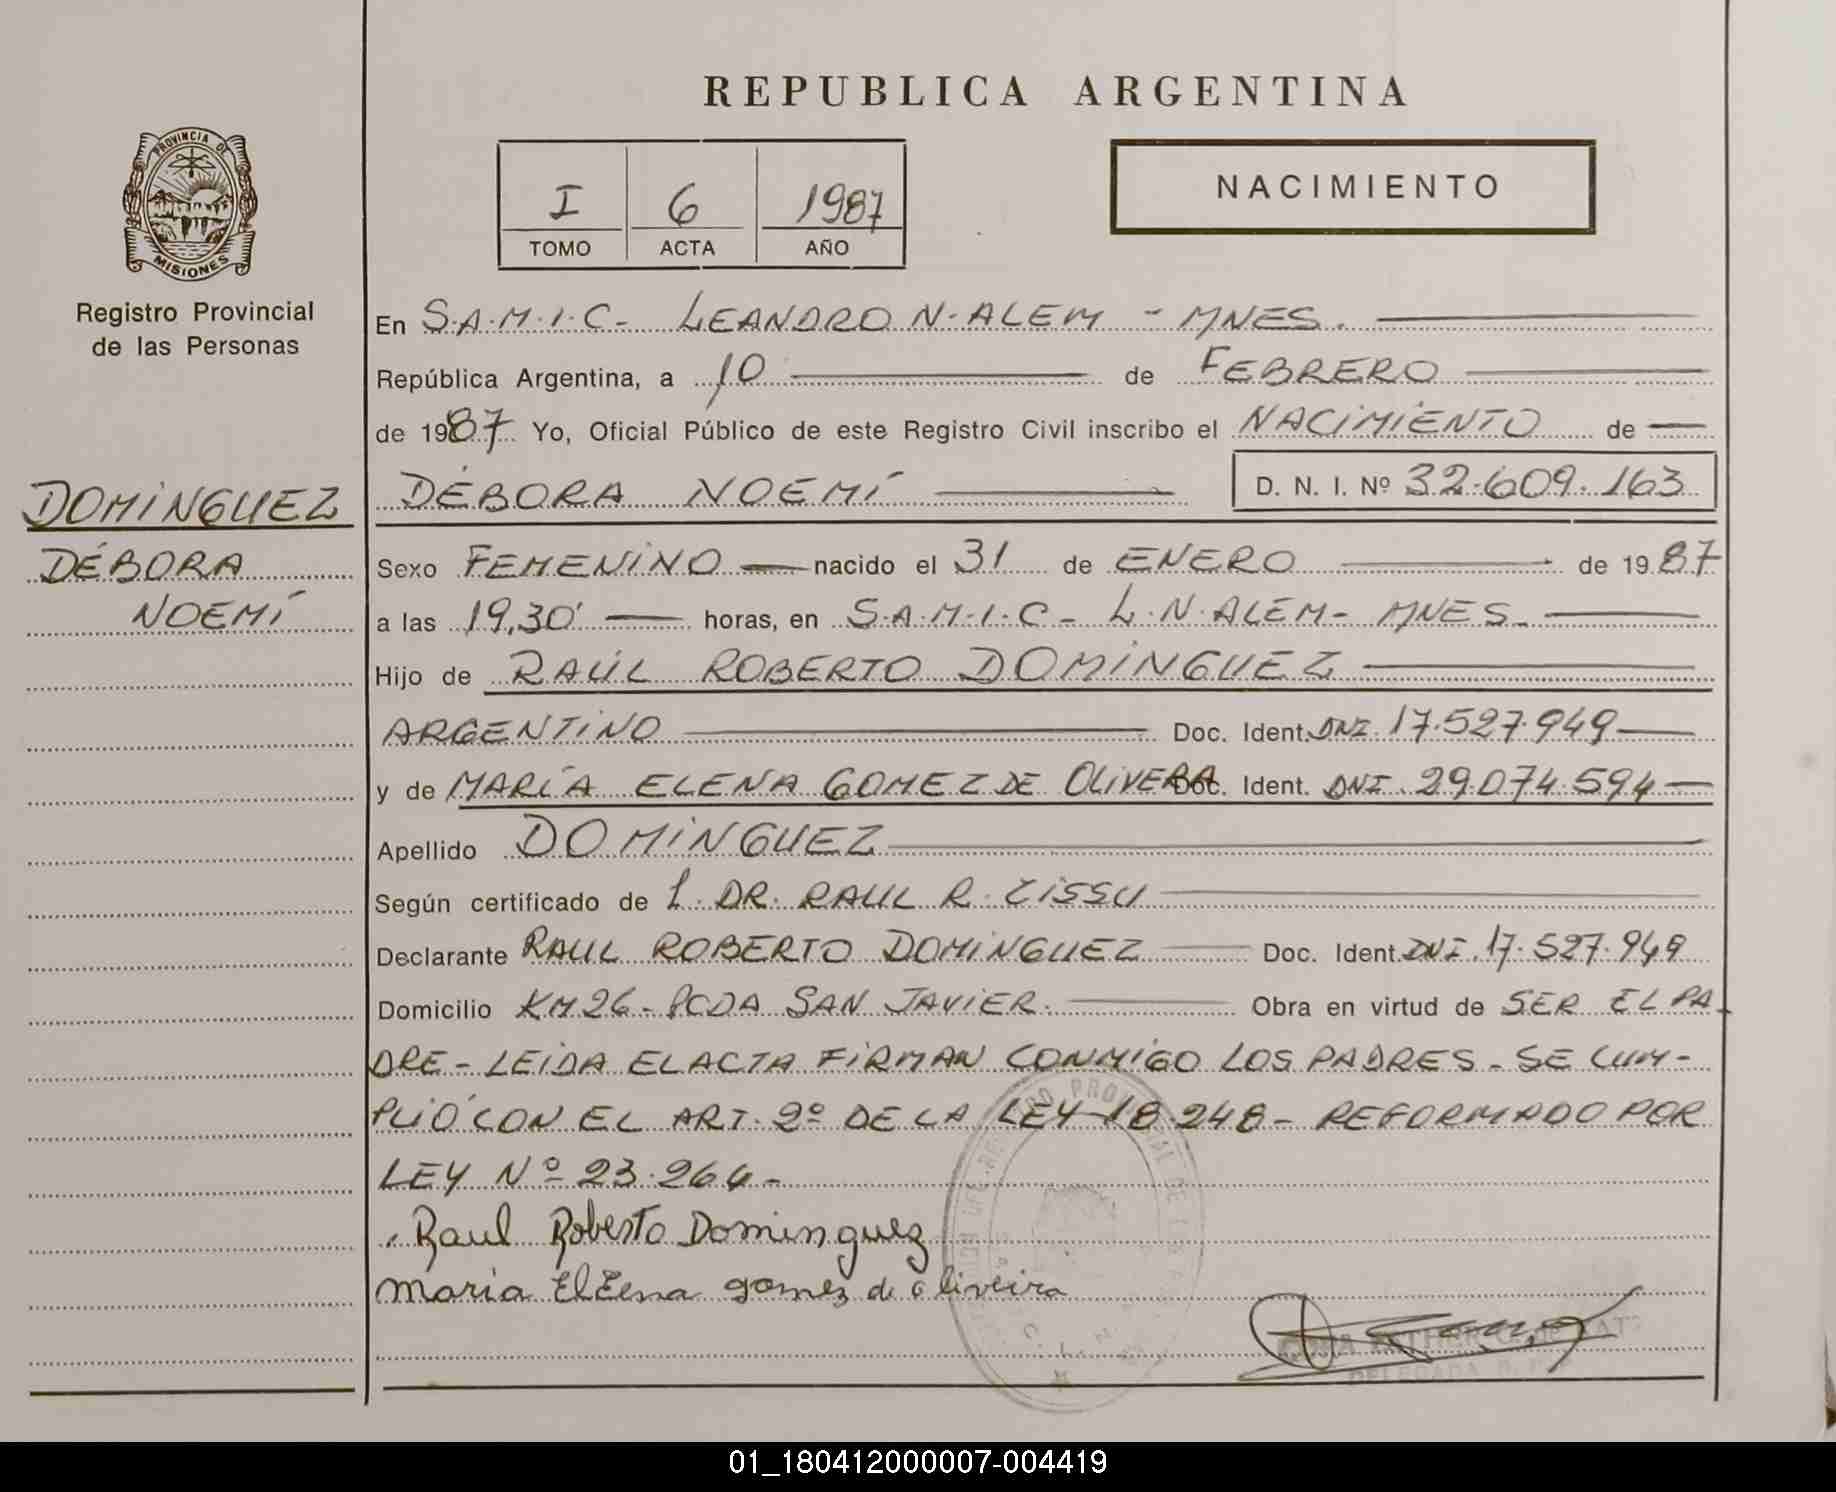 REPUBLICA ARGENTINA
PROVINCIA DE
MISIONES
Registro Provincial
de las Personas
I 6 1987
TOMO ACTA AÑO
NACIMIENTO
En S.A.M.I.C- LEANDRO N. ALEM - MNES.
República Argentina, a 10 de FEBRERO
de 1987 Yo, Oficial Público de este Registro Civil inscribo el NACIMIENTO de
DÉBORA NOEMÍ D. N. I. Nº 32.609.163
DOMINGUEZ
DÉBORA
NOEMÍ
Sexo FEMENINO nacido el 31 de ENERO de 1987
a las 19,30' horas, en S.A.M.I.C - L.N. ALEM - MNES.
Hijo de RAÚL ROBERTO DOMINGUEZ
ARGENTINO Doc. Ident. DNI. 17.527.949
y de MARÍA ELENA GOMEZ DE OLIVERA Doc. Ident. DNI. 29.074.594
Apellido DOMINGUEZ
Según certificado de L. DR. RAUL R. ZISSU
Declarante RAUL ROBERTO DOMINGUEZ Doc. Ident. DNI. 17.527.949
Domicilio KM 26 - PCDA SAN JAVIER. Obra en virtud de SER EL PA
DRE - LEIDA EL ACTA FIRMAN CONMIGO LOS PADRES - SE CUM-
PLIÓ CON EL ART. 2º DE LA LEY 18.248 - REFORMADO POR
LEY Nº 23.264 -
Raul Roberto Dominguez
Maria ElEena gomez de oliveira
01_180412000007-004419